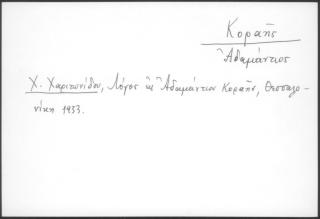 Κοραῆς
Ἀδαμάντιος
Χ. Χαριτωνίδου, Λόγος εἰς Ἀδαμάντιον Κοραῆν, Θεσσαλο-
νίκη 1933.